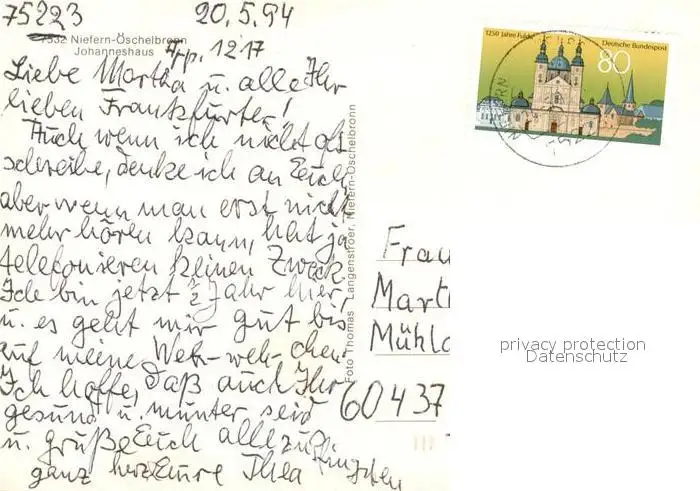 75223 20.5.94
7532 Niefern-Öschelbronn
Johanneshaus App. 1217
Liebe Martha u. alle Ihr
lieben Frankfurter!
Auch wenn ich nicht oft
schreibe, denke ich an Euch,
aber wenn man erst nicht
mehr hören kann, hat ja
telefonieren keinen Zweck.
Ich bin jetzt ½ Jahr hier,
u. es geht mir gut bis
auf meine Weh-weh-chen.
Ich hoffe, daß auch Ihr
gesund u. munter seid
u. grüße Euch alle zu Pfingsten
ganz herz Eure Thea
Foto Thomas Langenstroer, Niefern-Öschelbronn
1250 Jahre Fulda Deutsche Bundespost
80
Frau
Mart
Mühl
60437
privacy protection
Datenschutz